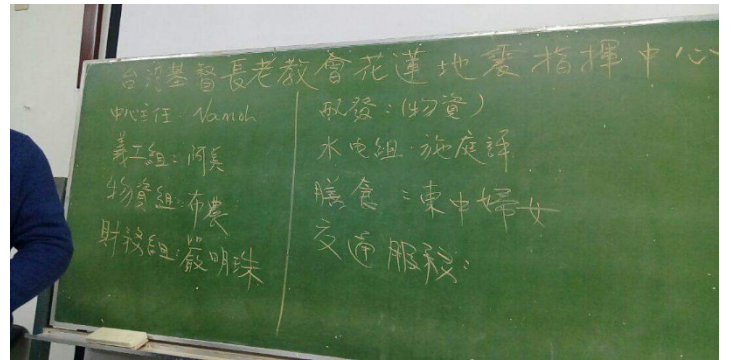 台灣基督長老教會花蓮地震指揮中心
中心主任：Namoh
義工組：阿美
物資組：布農
財務組：嚴明珠
收發：(物資)
水电組：施庭譯
膳食：東中婦女
交通服務：